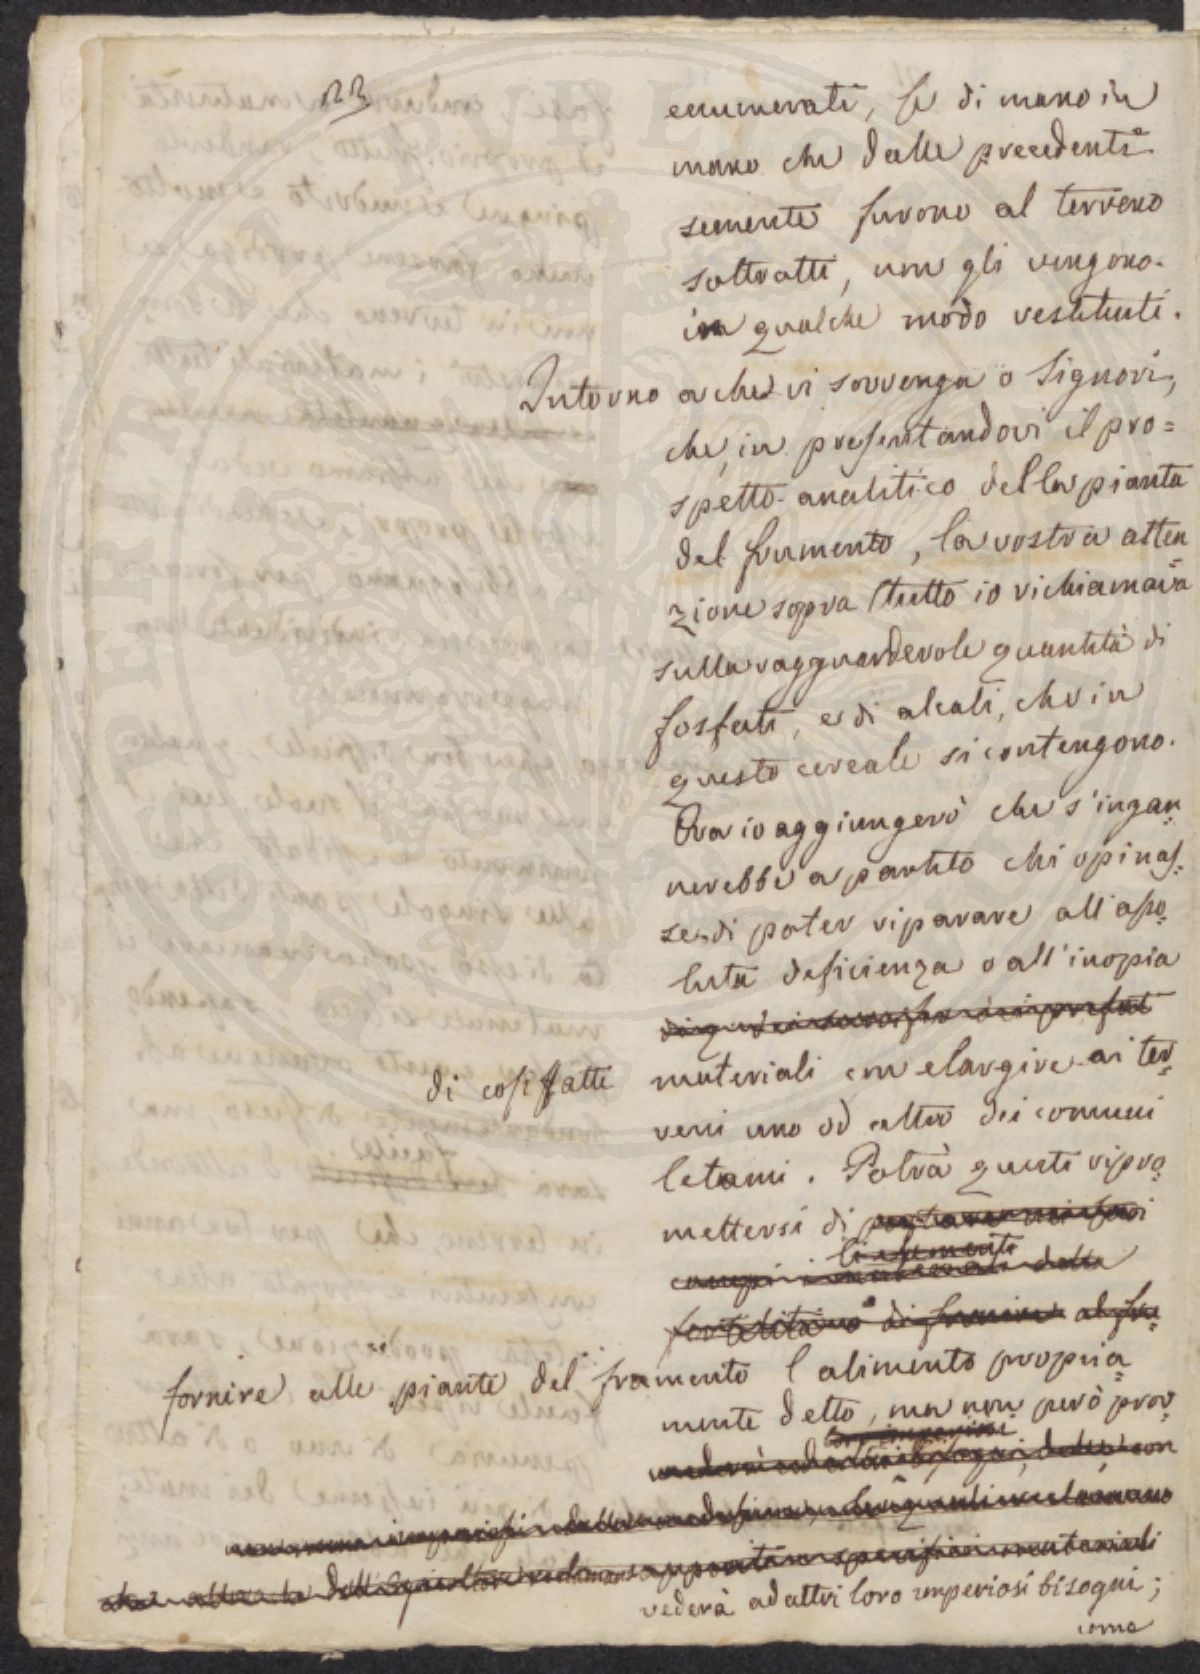 23
enumerati, se di mano in
mano che dalle precedenti
semente furono al terreno
sottratti, non gli vengono
in qualche modo restituiti.
Intorno a che vi sovvenga o Signori,
che, in presentandovi il pro=
spetto analitico della pianta
del frumento, la vostra atten
zione sopra tutto io richiamava
sulla ragguardevole quantità di
fosfati, e di alcali, che in
questo cereale si contengono.
Ora io aggiungerò che s'ingan
nerebbe a partito chi opinas=
se di poter riparare all'asso=
luta deficienza o all'inopia
di cosi fatti materiali con elargire ai ter=
reni uno od altro dei comuni
letami. Potrà questi ripro
mettersi di
li alimenti
campi i materiali della
fertilità o di fornire al fru=
fornire alle piante del frumento l'alimento propria=
mente detto, ma non però prov=
dell'Agricoltore reclamano
vederà ad altri loro imperiosi bisogni;
come